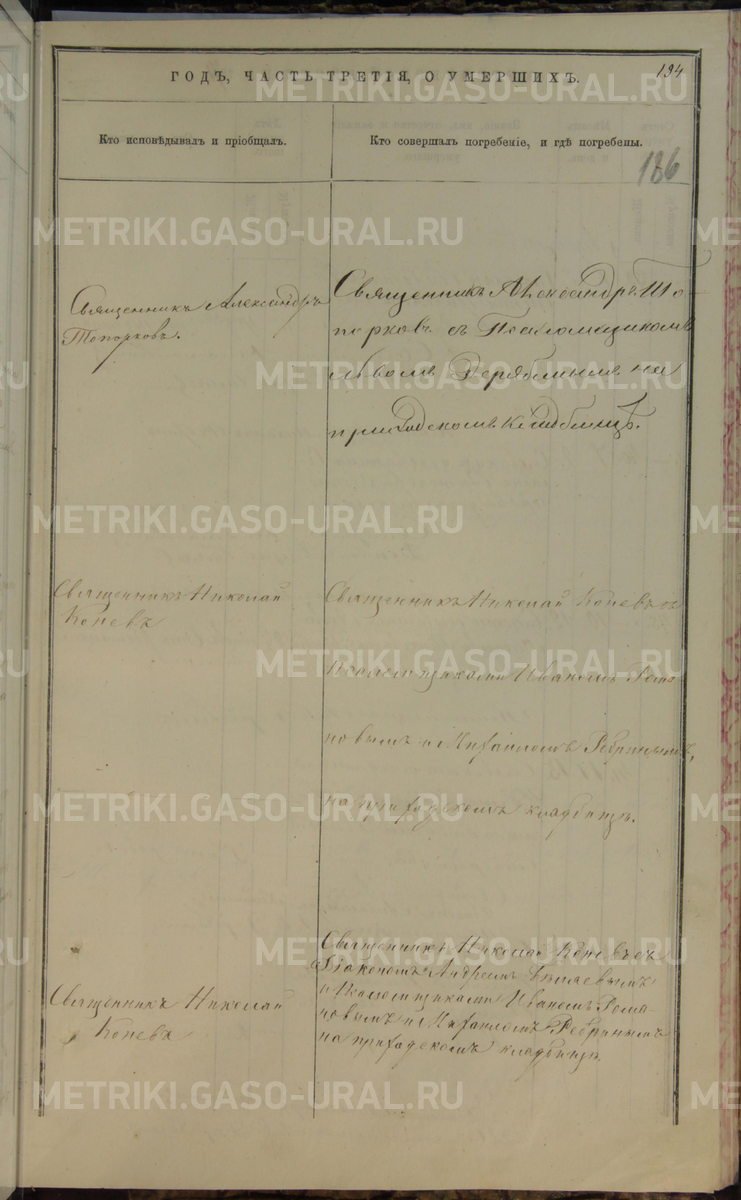 ГОДЪ, ЧАСТЬ ТРЕТІЯ, О УМЕРШИХЪ.
194
Кто исповѣдывалъ и пріобщалъ.
Кто совершалъ погребеніе, и гдѣ погребены.
186
Священникъ Александръ
Топорковъ.
Священникъ Александръ То-
порковъ съ Псаломщикомъ
Львомъ Дерябинымъ на
приходскомъ кладбищѣ.
Священникъ Николай
Коневъ
Священникъ Николай Коневъ съ
псаломщиками Иваномъ Рома-
новымъ и Михаиломъ
на приходскомъ кладбищѣ.
Священникъ Николай
Коневъ
Священникъ Николай Коневъ съ
Діакономъ Андреемъ
и Псаломщиками Иваномъ Рома-
новымъ и Михаиломъ
на приходскомъ кладбищѣ.
METRIKI.GASO-URAL.RU